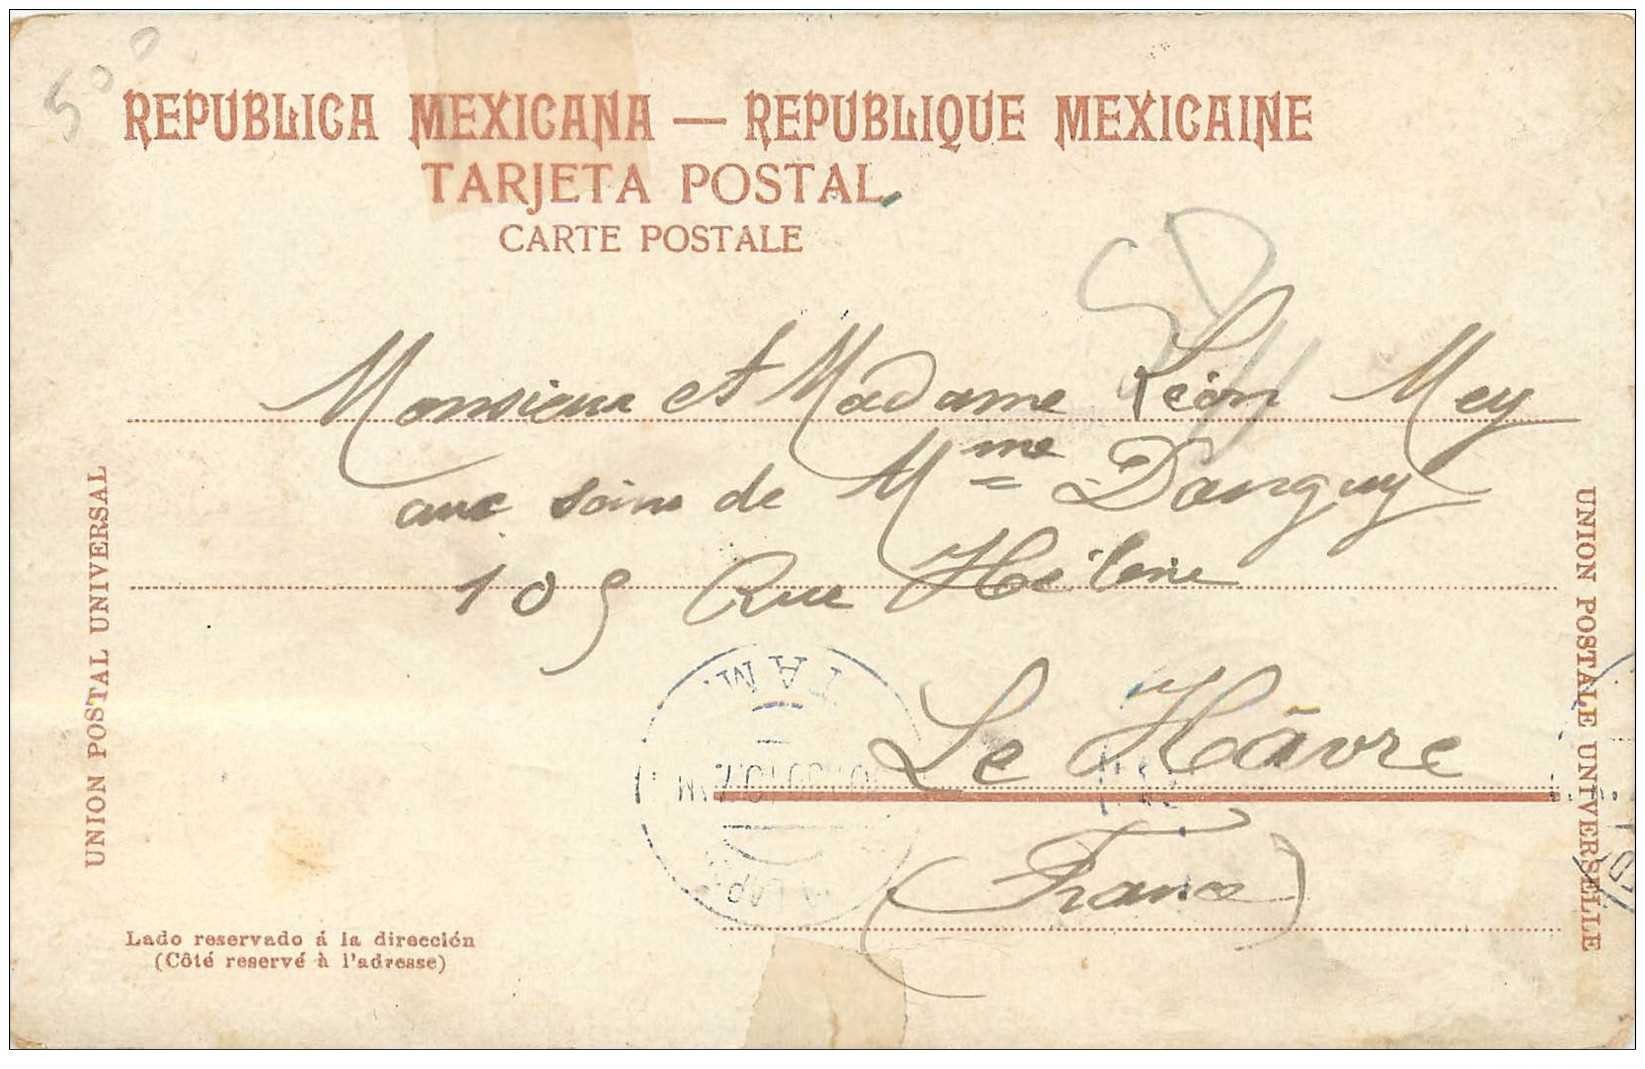 500
REPUBLICA MEXICANA — REPUBLIQUE MEXICAINE
TARJETA POSTAL
CARTE POSTALE
Monsieur et Madame Léon Mey
aux soins de Mme Danguy
109 Rue Hélène
Le Hâvre
(France)
UNION POSTAL UNIVERSAL
UNION POSTALE UNIVERSELLE
Lado reservado á la dirección
(Côté reservé à l'adresse)